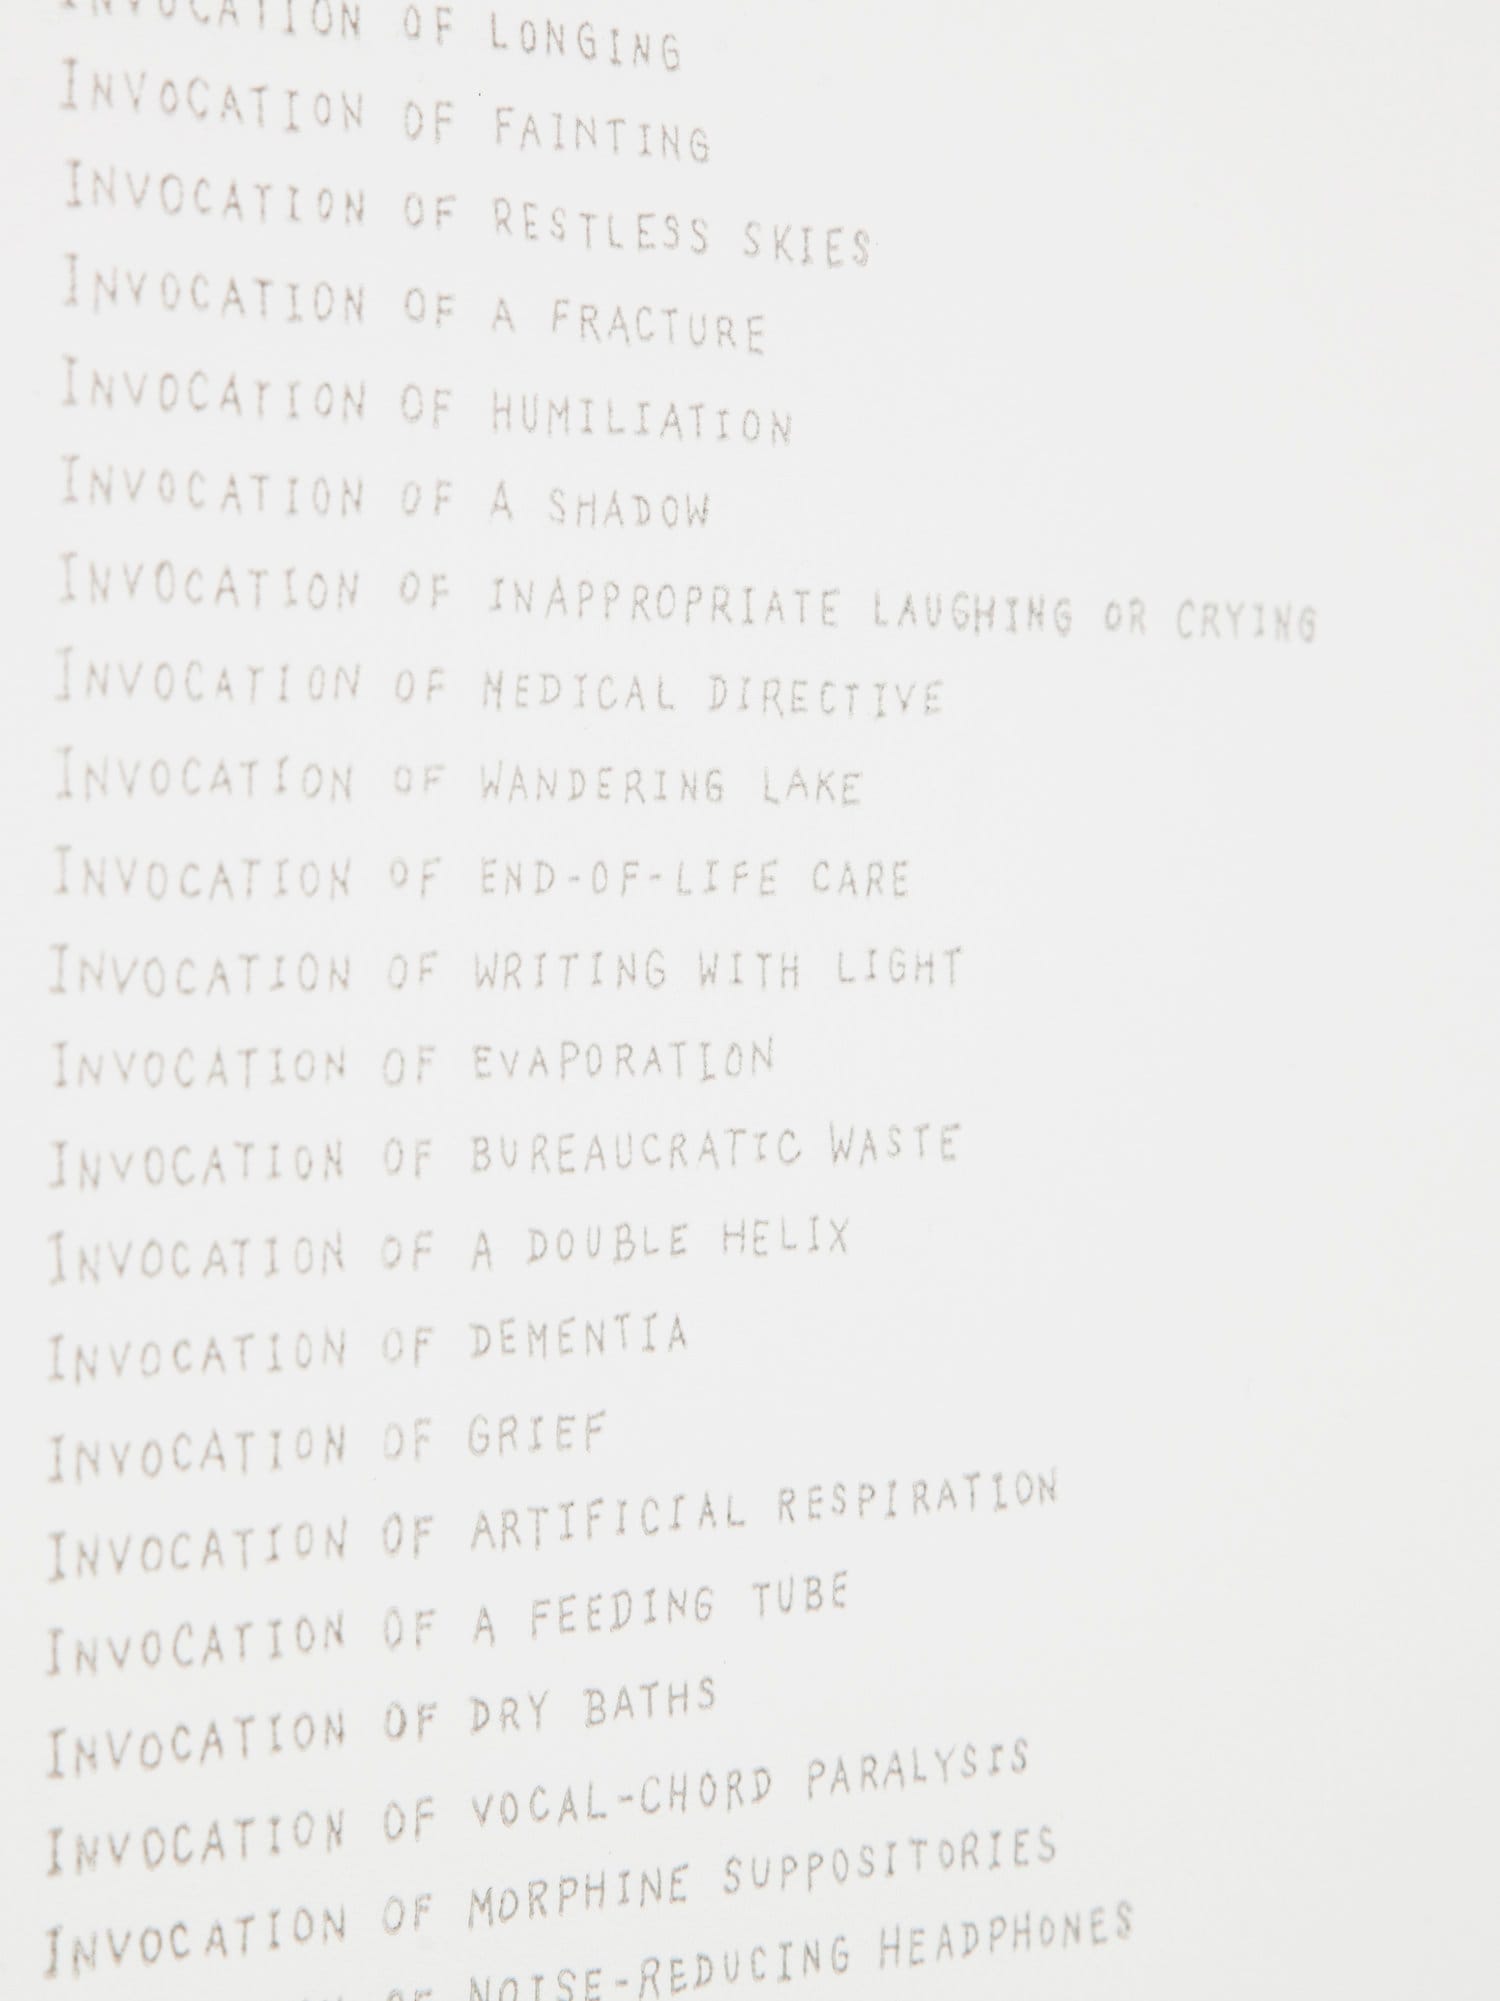 INVOCATION OF LONGING
INVOCATION OF FAINTING
INVOCATION OF RESTLESS SKIES
INVOCATION OF A FRACTURE
INVOCATION OF HUMILIATION
INVOCATION OF A SHADOW
INVOCATION OF INAPPROPRIATE LAUGHING OR CRYING
INVOCATION OF MEDICAL DIRECTIVE
INVOCATION OF WANDERING LAKE
INVOCATION OF END-OF-LIFE CARE
INVOCATION OF WRITING WITH LIGHT
INVOCATION OF EVAPORATION
INVOCATION OF BUREAUCRATIC WASTE
INVOCATION OF A DOUBLE HELIX
INVOCATION OF DEMENTIA
INVOCATION OF GRIEF
INVOCATION OF ARTIFICIAL RESPIRATION
INVOCATION OF A FEEDING TUBE
INVOCATION OF DRY BATHS
INVOCATION OF VOCAL-CHORD PARALYSIS
INVOCATION OF MORPHINE SUPPOSITORIES
OF NOISE-REDUCING HEADPHONES